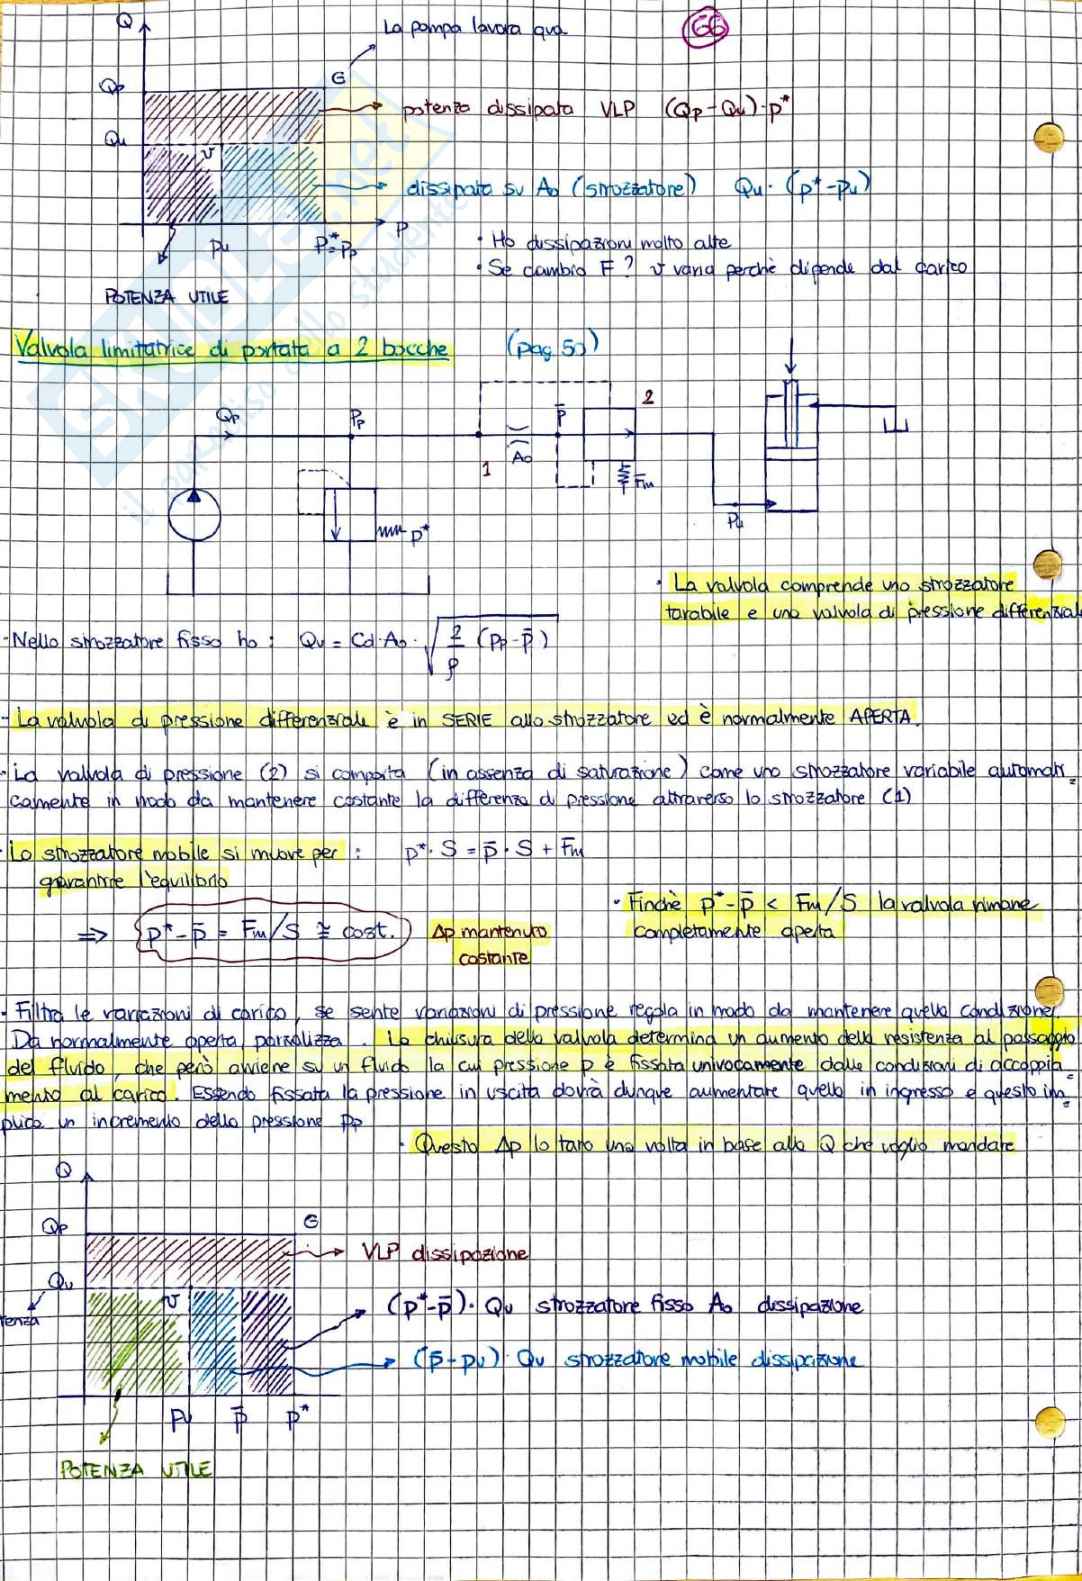 66
Q
La pompa lavora qua
Qp
G
potenza dissipata VLP (Qp-Qu)·p*
Qu
U
dissipata su A₀ (strozzatore) Qu·(p*-pu)
pu
p*=pp
P
· Ho dissipazioni molto alte
· Se cambia F? v varia perchè dipende dal carico
POTENZA UTILE
Valvola limitatrice di portata a 2 bocche (pag 50)
Qp
Pp
1
A₀
p̄
2
Fm
p*
Pu
· La valvola comprende uno strozzatore
tarabile e una valvola di pressione differenziale
- Nello strozzatore fisso ho: Qu = Cd·A₀·√(2/ρ (pp-p̄))
- La valvola di pressione differenziale è in SERIE allo strozzatore ed è normalmente APERTA.
· La valvola di pressione (2) si comporta (in assenza di saturazione) come uno strozzatore variabile automati-
camente in modo da mantenere costante la differenza di pressione attraverso lo strozzatore (1)
· Lo strozzatore mobile si muove per: p*·S = p̄·S + Fm
garantire l'equilibrio
⇒ p*-p̄ = Fm/S ≅ cost. Δp mantenuto
costante
· Finchè p*-p̄ < Fm/S la valvola rimane
completamente aperta
· Filtra le variazioni di carico, se sente variazioni di pressione regola in modo da mantenere quella condizione.
Da normalmente aperta, parzializza. La chiusura della valvola determina un aumento della resistenza al passaggio
del fluido, che però avviene su un fluido la cui pressione p è fissata univocamente dalle condizioni di accoppia-
mento al carico. Essendo fissata la pressione in uscita dovrà dunque aumentare quella in ingresso e questo im-
plica un incremento della pressione pp
· Questo Δp lo taro una volta in base alla Q che voglio mandare
Q
Qp
G
VLP dissipazione
Qu
U
(p*-p̄)·Qu strozzatore fisso A₀ dissipazione
(p̄-pu)·Qu strozzatore mobile dissipazione
Pu
p̄
p*
POTENZA UTILE